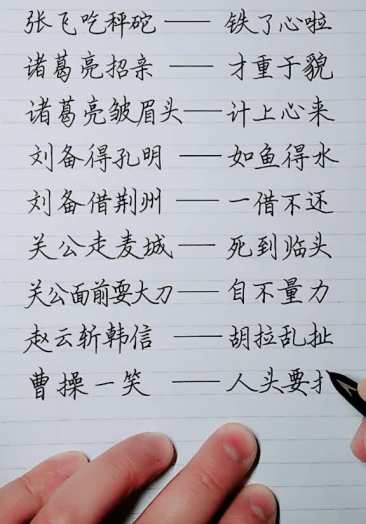 张飞吃秤砣——铁了心啦
诸葛亮招亲——才重于貌
诸葛亮皱眉头——计上心来
刘备得孔明——如鱼得水
刘备借荆州——一借不还
关公走麦城——死到临头
关公面前耍大刀——自不量力
赵云斩韩信——胡拉乱扯
曹操一笑——人头要